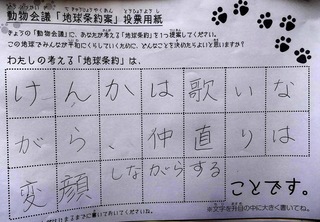 動物会議「地球条約案」投票用紙
きょうの「動物会議」に、あなたが考える「地球条約」を1つ提案してください。
この地球でみんなが平和にくらしていくために、どんなことを決めたらよいと思いますか？
わたしの考える「地球条約」は、
けんかは歌いな
がら、仲直りは
変顔しながらする
ことです。
※文字を升目の中に大きく書いてね。